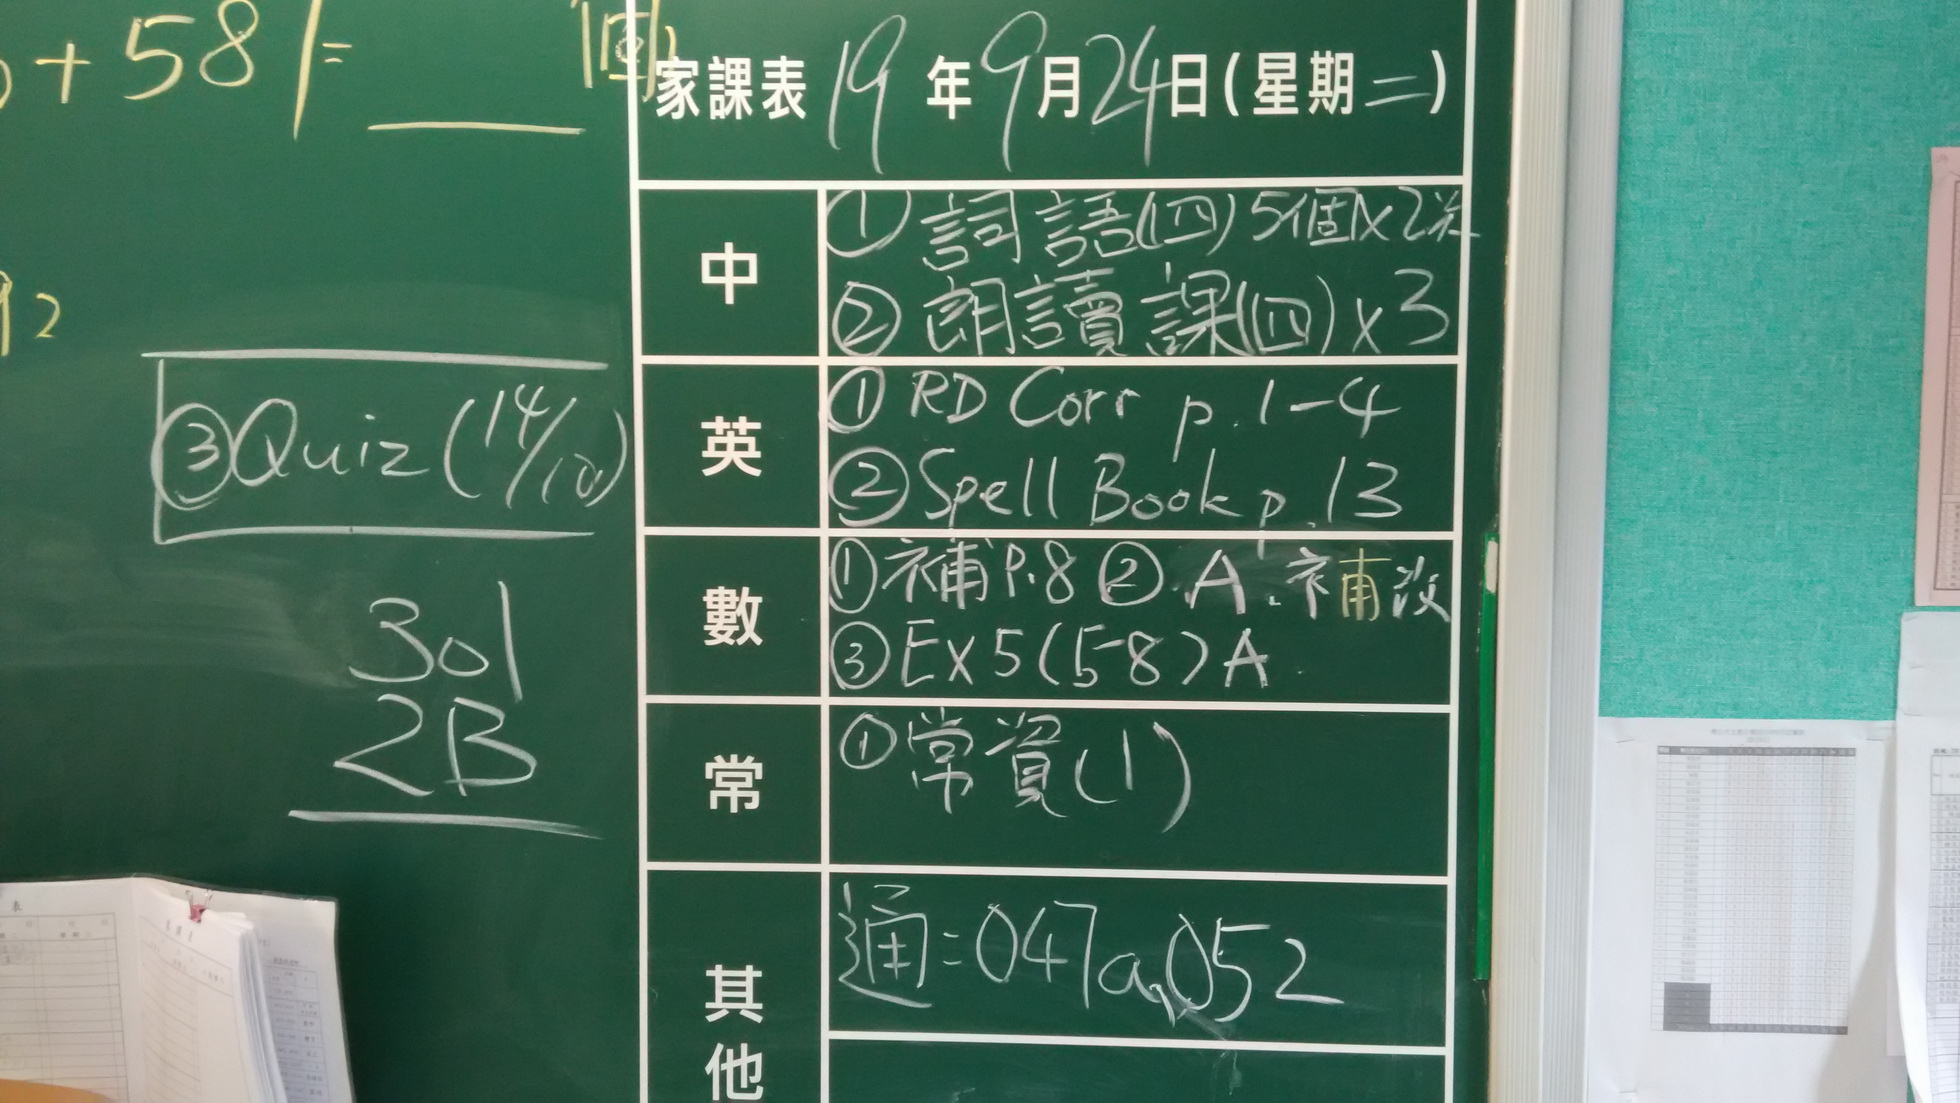 + 581 = ____ 個
家課表 19年9月24日(星期二)
中
① 詞語(四) 5個x2次
② 朗讀課(四) x3
英
① RD Corr p.1-4
② Spell Book p.13
③ Quiz (14/10)
數
① 補P.8 ② A.補改
③ Ex5(5-8)A
常
① 常資(1)
其他
通:047a、052
92
301
2B
表